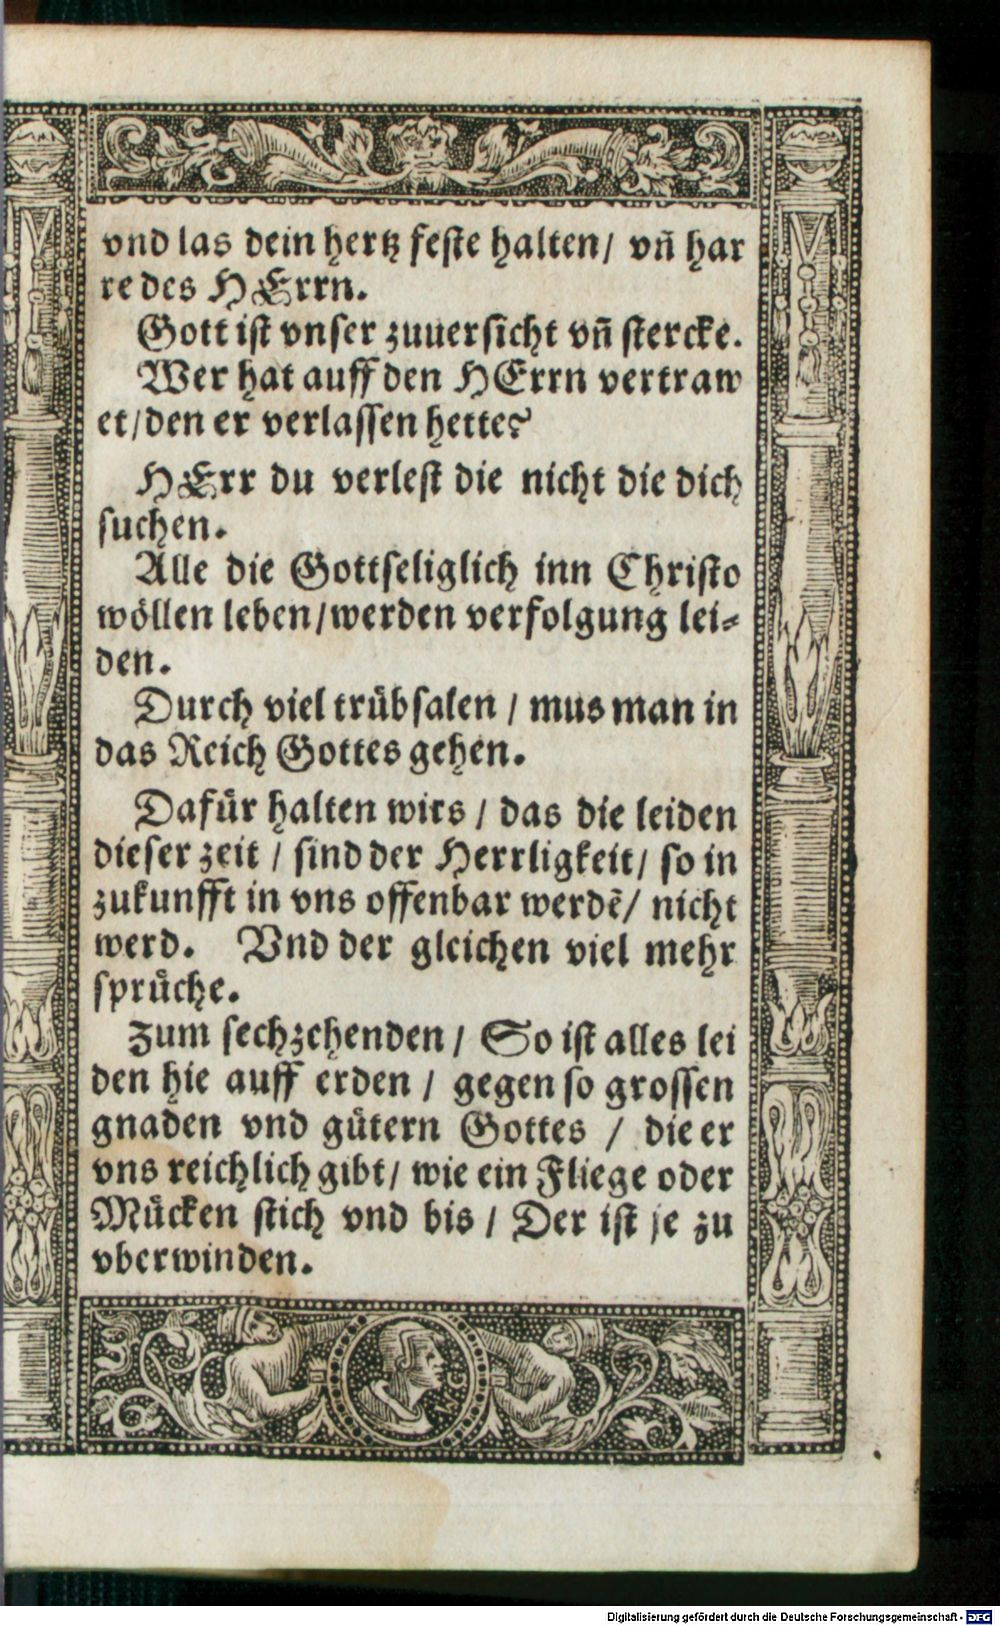 vnd las dein hertz feste halten/ vñ har
re des HErrn.
Gott ist vnser zuuersicht vñ stercke.
Wer hat auff den HErrn vertraw
et/den er verlassen hette?
HErr du verlest die nicht die dich
suchen.
Alle die Gottseliglich inn Christo
wöllen leben/werden verfolgung lei-
den.
Durch viel trübsalen / mus man in
das Reich Gottes gehen.
Dafür halten wirs / das die leiden
dieser zeit / sind der Herrligkeit/ so in
zukunfft in vns offenbar werdẽ/ nicht
werd. Vnd der gleichen viel mehr
sprüche.
Zum sechzehenden / So ist alles lei
den hie auff erden / gegen so grossen
gnaden vnd gütern Gottes / die er
vns reichlich gibt/ wie ein Fliege oder
Mücken stich vnd bis / Der ist je zu
vberwinden.
Digitalisierung gefördert durch die Deutsche Forschungsgemeinschaft - DFG